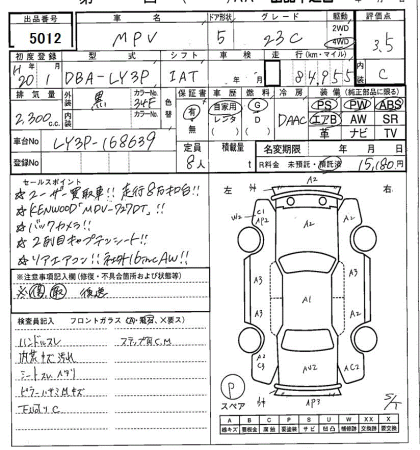 出品番号 車名 ドア形状 グレード 駆動 評価点
5012 MPV 5 23C 2WD 4WD 3.5
初度登録 型式 シフト 車検 走行(km・マイル) 内装
H20 1 DBA-LY3P IAT 年 月 84,855 C
排気量 外装 黒 カラーNo. 35F 色替 カラーNo. 保証書 車歴 燃料 冷房 装備 (純正部品に限る)
2,300 c.c. 有 無 自家用 レンタ G D DAAC PS PW ABS
エアB AW SR
革 ナビ TV
車台No LY3P-168639 定員 8人 積載量 t 名変期限 年 月 日
登録No R料金 未預託・預託済 15,180円
セールスポイント
☆ユーザー買取車!! 走行8万和台!!
☆KENWOOD「MDV-727DT」!!
☆バックカメラ!!
☆2列目キャプテンシート!!
☆リアエアコン!! 社外16incAW!!
※注意事項記入欄(修復・不具合箇所および状態等)
※ 取 後送
検査員記入 フロントガラス (A・飛石、×要ス)
ハンドルスレ ステップ内C.M
内装キズ汚れ
シートスレ
ピラーハサミキズ
下廻りC
左 外 右
A2
W2 C1 AP2 A2 A2
A3 A3
A1
A3 A3
A2 C3 AU2 AC2
P スペア 外 AP3 S/T
A B C P S U W X XX
線キズ 要板金 腐蝕 要塗装 サビ 凹凸 補修跡 交換跡 要交換